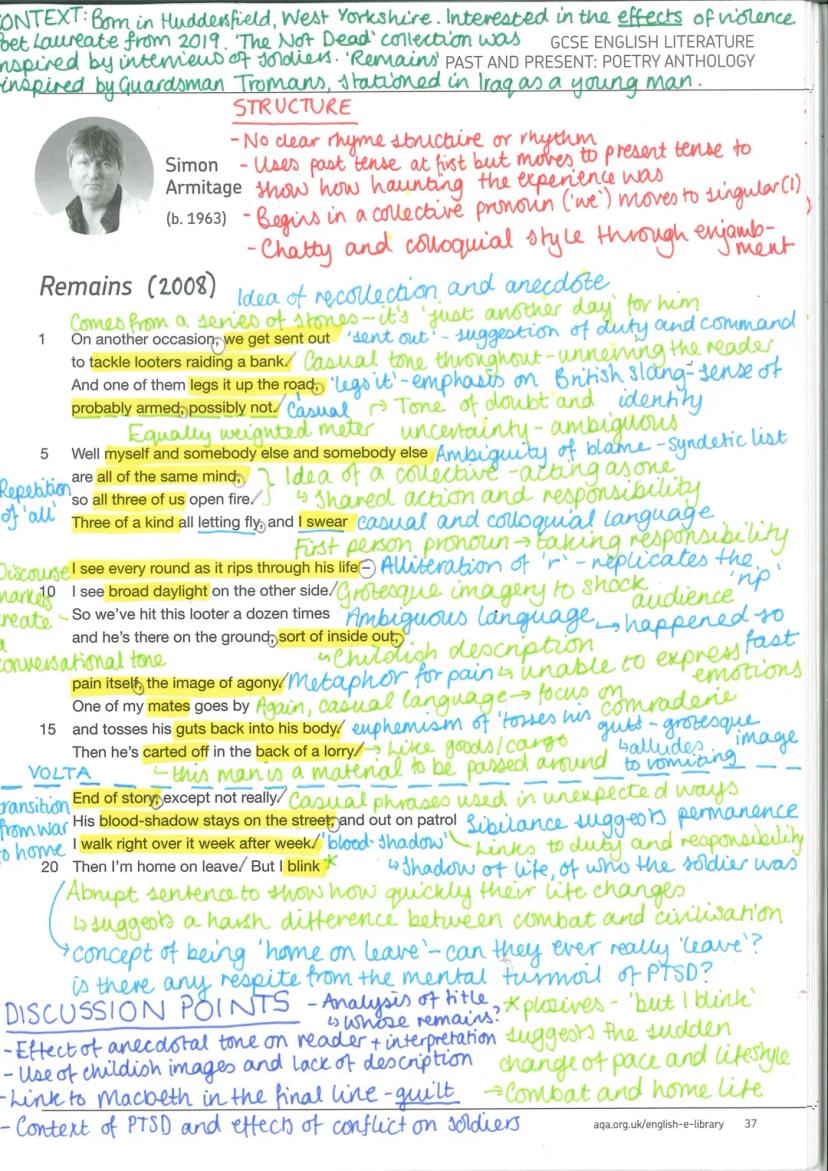 CONTEXT: Born in Huddersfield, West Yorkshire. Interested in the effects of violence
Poet Laureate from 2019. 'The Not Dead' collection was
GCSE ENGLISH LITERATURE
inspired by interviews of soldiers. 'Remains'
PAST AND PRESENT: POETRY ANTHOLOGY
inspired by Guardsman Tromans, stationed in Iraq as a young man.
STRUCTURE
- No clear rhyme structure or rhythm
- Uses past tense at first but moves to present tense to
show how haunting the experience was
- Begins in a collective pronoun ('we') moves to singular (I)
- Chatty and colloquial style through enjamb-
ment
Simon
Armitage
(b. 1963)
Remains (2008)
Idea of recollection and anecdote
Comes from a series of stories - it's 'just another day' for him
1 On another occasion, we get sent out 'sent out' - suggestion of duty and command
to tackle looters raiding a bank. / Casual tone throughout - unnerving the reader
And one of them legs it up the road, 'legs it' - emphasis on British slang - sense of
identity
probably armed, possibly not. / Casual → Tone of doubt and
uncertainty - ambiguous
Equally weighted meter
5 Well myself and somebody else and somebody else Ambiguity of blame - syndetic list
are all of the same mind, } Idea of a collective - acting as one
Repetition
of 'all'
so all three of us open fire. / ↳ Shared action and responsibility
Three of a kind all letting fly, and I swear casual and colloquial language
First person pronoun → taking responsibility
I see every round as it rips through his life – Alliteration of 'r' - replicates the
'rip'
Discourse
markers
create
a
conversational tone
10 I see broad daylight on the other side. / Grotesque imagery to shock
audience
So we've hit this looter a dozen times Ambiguous language → happened so
fast
and he's there on the ground, sort of inside out,
↳ Childish description ↳ unable to express
emotions
pain itself, the image of agony. / Metaphor for pain
One of my mates goes by Again, casual language → focus on
comraderie
15 and tosses his guts back into his body. / euphemism of 'tosses his guts - grotesque
image
↳ alludes
to vomiting
Then he's carted off in the back of a lorry. / → Like goods/cargo
↳ this man is a material to be passed around
VOLTA
transition
from war
to home
End of story, except not really. / Casual phrases used in unexpected ways
His blood-shadow stays on the street, and out on patrol Sibilance suggests permanence
I walk right over it week after week. / 'blood-shadow' Links to duty and responsibility
↳ Shadow of life, of who the soldier was
20 Then I'm home on leave. / But I blink *
Abrupt sentence to show how quickly their life changes
↳ suggests a harsh difference between combat and civilisation
→ concept of being 'home on leave' - can they ever really 'leave'?
is there any respite from the mental turmoil of PTSD?
DISCUSSION POINTS
- Analysis of title
↳ whose remains?
- Effect of anecdotal tone on reader + interpretation
- Use of childish images and lack of description
- Link to Macbeth in the final line - guilt
- Context of PTSD and effects of conflict on soldiers
* plosives - 'but I blink'
suggests the sudden
change of pace and lifestyle
→ Combat and home life
aqa.org.uk/english-e-library 37